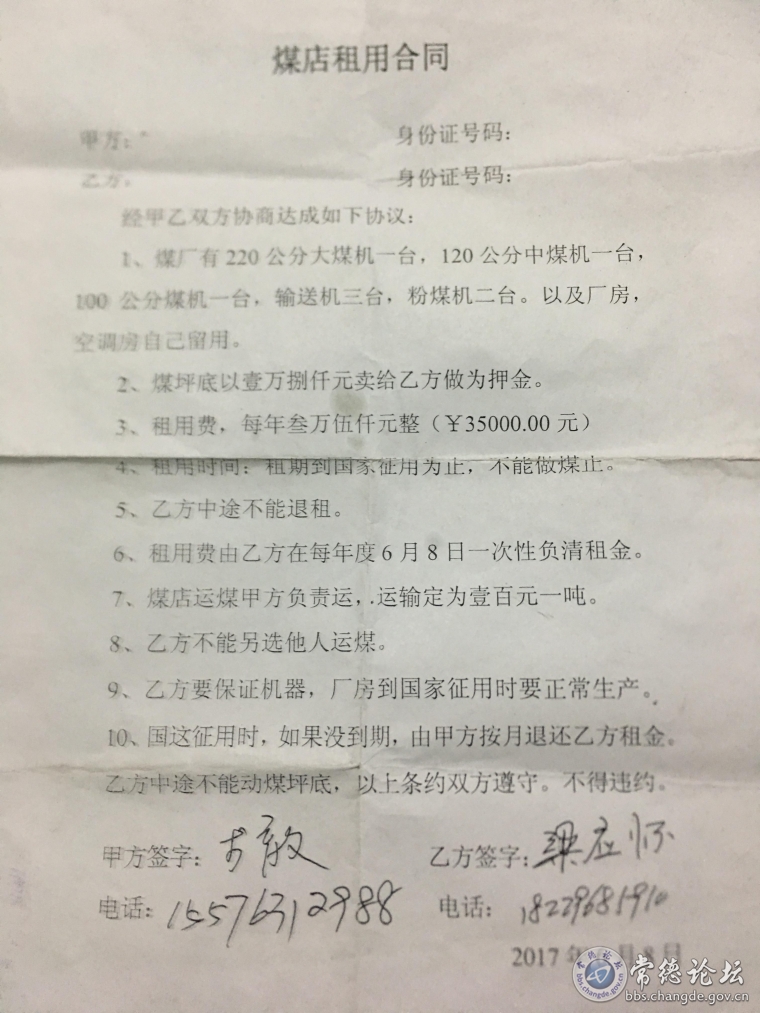 煤店租用合同
甲方: 身份证号码:
乙方: 身份证号码:
经甲乙双方协商达成如下协议:
1、煤厂有220公分大煤机一台，120公分中煤机一台，
100 公分煤机一台，输送机三台，粉煤机二台。以及厂房，
空调房自己留用。
2、煤坪底以壹万捌仟元卖给乙方做为押金。
3、租用费，每年叁万伍仟元整（￥35000.00 元）
4、租用时间：租期到国家征用为止，不能做煤止。
5、乙方中途不能退租。
6、租用费由乙方在每年度 6 月 8 日一次性负清租金。
7、煤店运煤甲方负责运，.运输定为壹百元一吨。
8、乙方不能另选他人运煤。
9、乙方要保证机器，厂房到国家征用时要正常生产。
10、国这征用时，如果没到期，由甲方按月退还乙方租金。
乙方中途不能动煤坪底，以上条约双方遵守。不得违约。
甲方签字: 乙方签字: 梁应怀
电话: 15576312988 电话: 18229681910
2017 年 月 8 日
常德论坛
bbs.changde.gov.cn